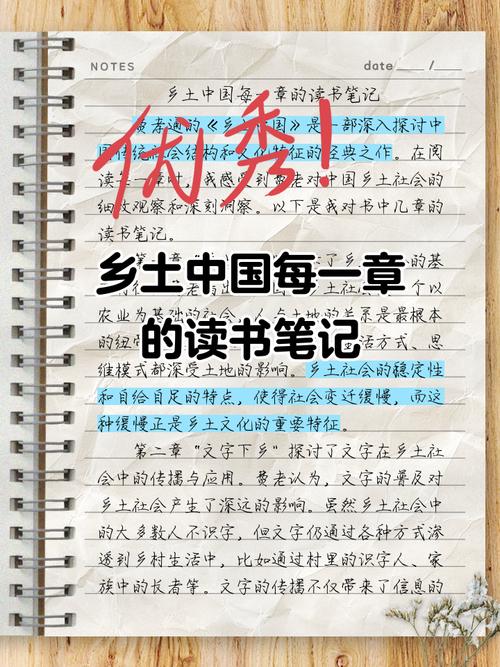 NOTES date / 
乡土中国每一章的读书笔记
孝通的《乡 国》是一部深入探讨中
国传统社会结构和文化特征的经典之作。在阅
读每一章时，我感受到 老对中国乡土社会的
细致观察和深刻洞察。以下是我对书中几章的
读书笔记。
优秀!
的基
乡土中国每一章
个以
农业为基础的社会，人与土地的关系是最根本
的读书笔记
的纽 活方式、思
维模式都深受土地的影响。乡土社会的稳定性
和自给自足的特点，使得社会变迁缓慢，而这
种缓慢正是乡土文化的重要特征。
第二章“文字下乡”探讨了文字在乡土社
会中的传播与应用。黄老认为，文字的普及对
乡土社会产生了深远的影响。虽然乡土社会中
的大多数人不识字，但文字仍通过各种方式渗
透到乡村生活中，比如通过村里的识字人、家
族中的长者等。文字的传播不仅带来了信息的